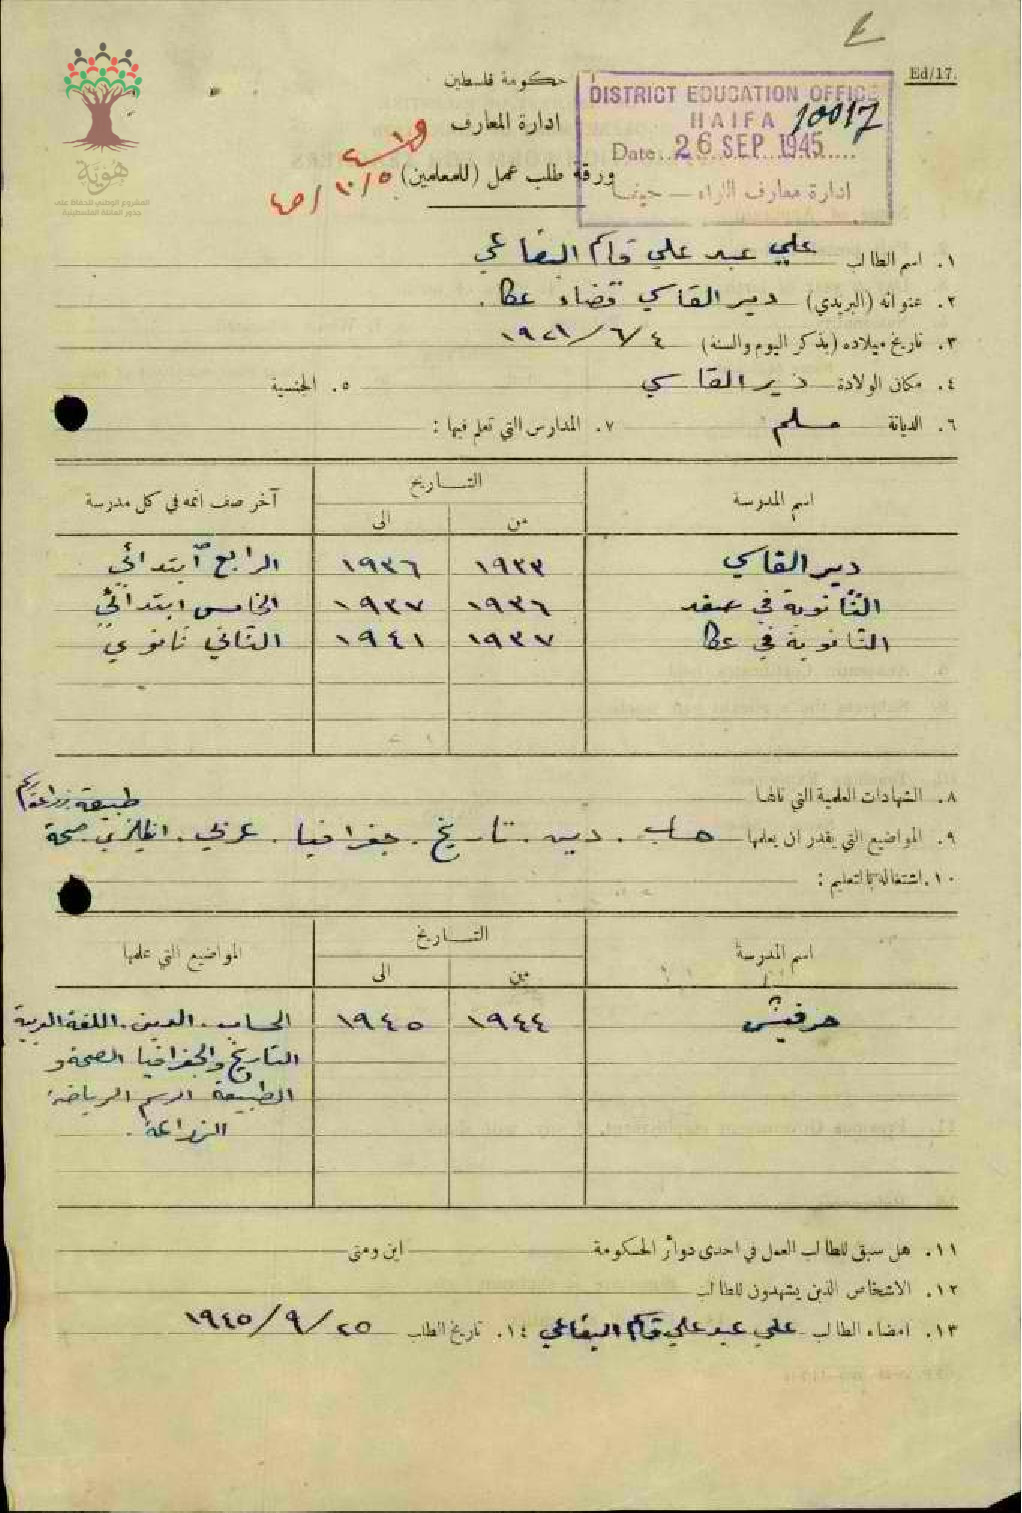 Ed/17.
حكومة فلسطين
ادارة المعارف
ورقة طلب عمل (للمعلمين)
DISTRICT EDUCATION OFFICE
HAIFA
10017
Date 26 SEP 1945
ادارة معارف اللواء — حيفا
٤٥/١٠/٥
هوية
المشروع الوطني للحفاظ على
جذور العائلة الفلسطينية
١. اسم الطالب علي عبد علي قاسم البقاعي
٢. عنوانه (البريدي) دير القاسي قضاء عكا.
٣. تاريخ ميلاده (بذكر اليوم والسنة) ٤/٦/١٩٢١
٤. مكان الولادة دير القاسي ٥. الجنسية
٦. الديانة مسلم ٧. المدارس التي تعلم فيها:
اسم المدرسة التــاريخ آخر صف اتمه في كل مدرسة
من الى
دير القاسي ١٩٣٣ ١٩٣٦ الرابع ابتدائي
الثانوية في صفد ١٩٣٦ ١٩٣٧ الخامس ابتدائي
الثانوية في عكا ١٩٣٧ ١٩٤١ الثاني ثانوي
٨. الشهادات العلمية التي نالها
طبيعة زراعة رسم
٩. المواضيع التي يقدر ان يعلمها حساب. دين. تاريخ. جغرافيا. عربي. انكليزي صحة
١٠. اشتغاله بالتعليم:
اسم المدرسة التــاريخ المواضيع التي علمها
من الى
حرفيش ١٩٤٤ ١٩٤٥ الحساب. الدين. اللغة العربية
التاريخ والجغرافيا الصحة و
الطبيعة الرسم الرياضة
الزراعة.
١١. هل سبق للطالب العمل في احدى دوائر الحكومة اين ومتى
١٢. الاشخاص الذين يشهدون للطالب
١٣. امضاء الطالب علي عبد علي قاسم البقاعي ١٤. تاريخ الطلب ٢٥/٩/١٩٤٥